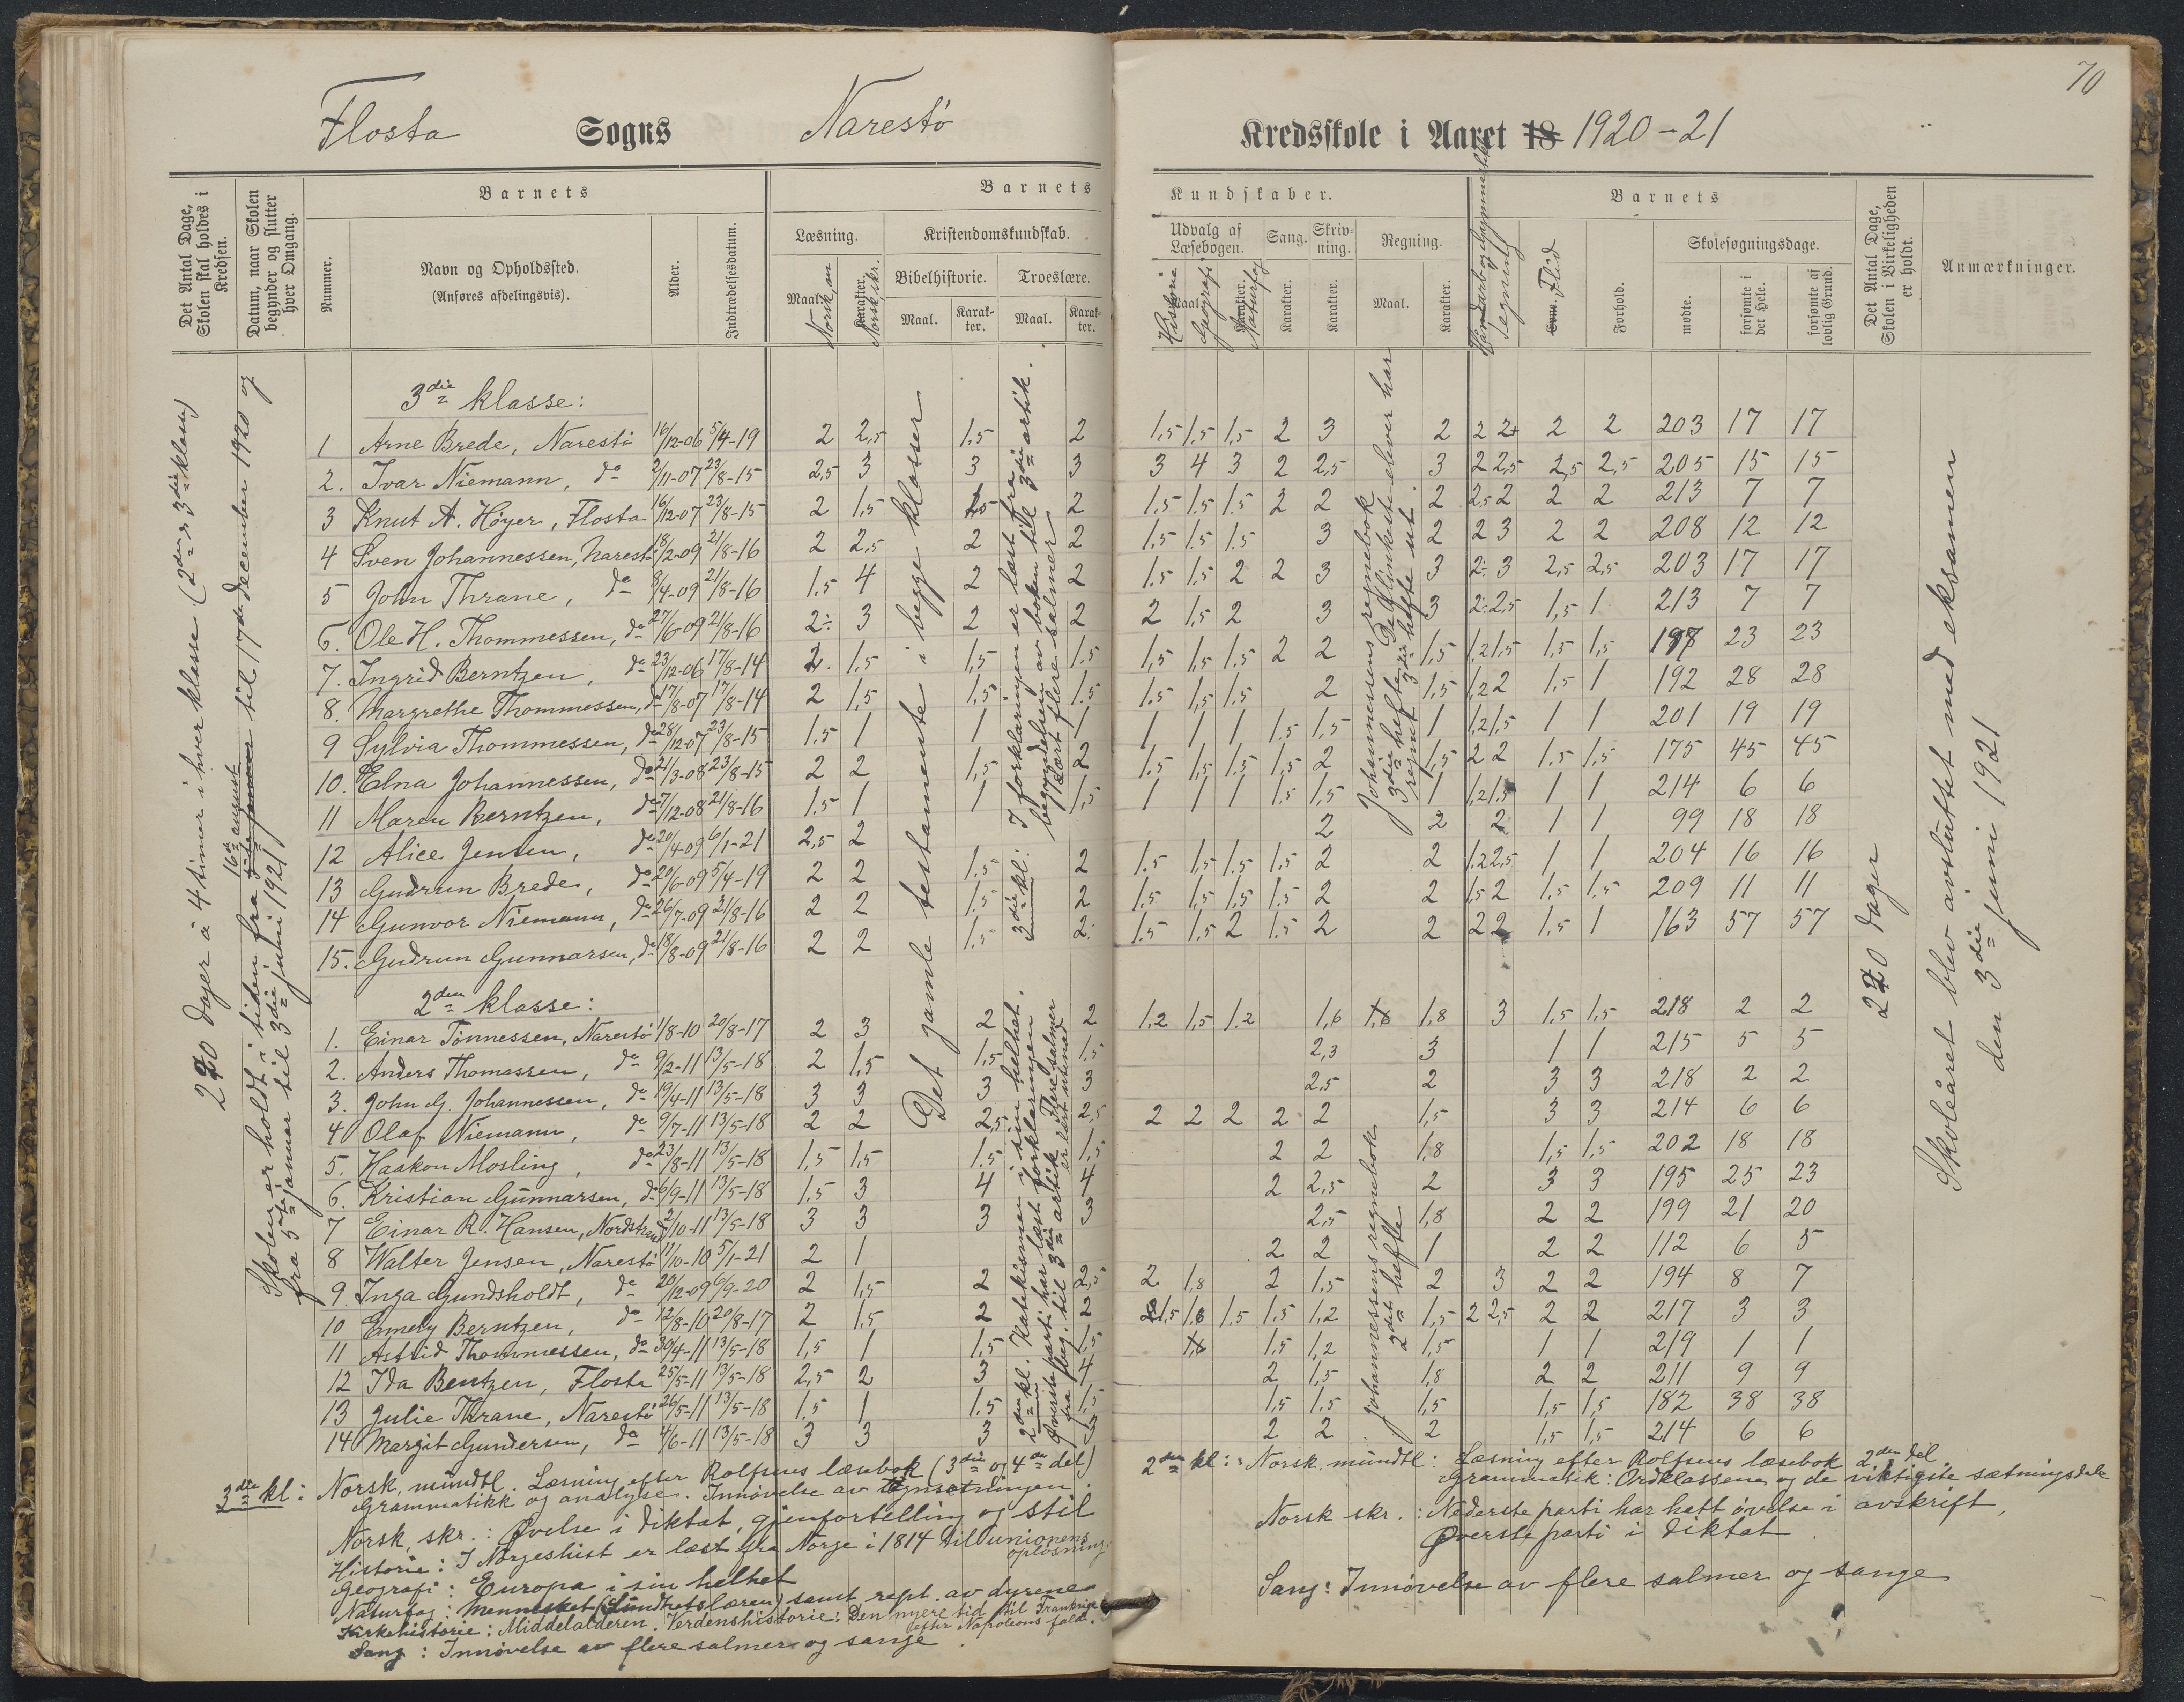 70
Flosta Sogns Narestö Kredsskole i Aaret 18 1920-21
Det Antal Dage, Skolen skal holdes i Kredsen.
Datum, naar Skolen begynder og slutter hver Omgang.
Barnets
Nummer.
Navn og Opholdssted.
(Anføres afdelingsvis).
Alder.
Indtrædelsesdatum.
Barnets Kundskaber.
Læsning.
Maal. Norsk, m
Karakter. Norsk, skr.
Kristendomskundskab.
Bibelhistorie.
Maal.
Karakter.
Troeslære.
Maal.
Karakter.
Udvalg af Læsebogen.
Historie
Maal.
Geografi
Karakter.
Naturfag
Sang.
Karakter.
Skrivning.
Karakter.
Regning.
Maal.
Karakter.
Tegning
Evne. Flid
Barnets
Forhold.
Skolesøgningsdage.
mødte.
forsømte i det Hele.
forsømte af lovlig Grund.
Det Antal Dage, Skolen i Virkeligheden er holdt.
Anmærkninger.
220 dager à 4 timer i hver klasse (2den & 3die klasse)
Skolen er holdt i tiden fra 16de august til 17de december 1920 og
fra 5te januar til 3die juni 1921
Det gamle testamente i begge klasser
3die kl: I forklaringen er læst fra begyndelsen av boken til 3die artik.
Lært flere salmer
Johannessens regnebok
3die hefte. De flinkeste elever har
regnet 3die hefte ut.
220 dager
Skoleåret blev avsluttet med eksamen
den 3die juni 1921
3die klasse:
1 Arne Brede, Narestö 16/12-06 5/4-19 2 2,5 1.5 2 1,5 1.5 1,5 2 3 2 2 2+ 2 2 203 17 17
2. Ivar Niemann, do 2/11-07 23/8-15 2,5 3 3 3 3 4 3 2 2,5 3 2 2,5 2,5 2,5 205 15 15
3 Knut A. Höyer, Flosta 16/12-07 23/8-15 2 1,5 1,5 2 1.5 1.5 1.5 2 2 2 2,5 2 2 2 213 7 7
4 Sven Johannessen, Narestö 18/2-09 21/8-16 2 2,5 2 2 1.5 1.5 1.5 3 2 2 3 2 2 208 12 12
5 John Thrane, do 8/4-09 21/8-16 1.5 4 2 2 1.5 1.5 2 2 3 3 2÷ 3 2,5 2,5 203 17 17
6. Ole H. Thommessen, do 27/6-09 21/8-16 2÷ 3 2 2 2 1,5 2 3 3 2÷ 2,5 1,5 1 213 7 7
7. Ingrid Berntzen, do 23/12-06 17/8-14 2. 1.5 1,5 1.5 1,5 1,5 1.5 2 2 1,5 1,2 1,5 1,5 1,5 197 23 23
8. Margrethe Thommessen, do 17/8-07 17/8-14 2 1,5 1,5 1.5 1.5 1,5 1.5 2 1,5 1,2 2 1.5 1 192 28 28
9 Sylvia Thommessen, do 28/12-07 23/8-15 1.5 1 1 1 1 1 1 1.5 1,5 1 1,2 1,5 1 1 201 19 19
10. Elna Johannessen, do 21/3-08 23/8-15 2 2 1,5 2 1.5 1,5 1.5 1,5 2 1,5 2 2 1.5 1,5 175 45 45
11 Maren Berntzen, do 7/12-08 21/8-16 1.5 1 1 1,5 1 1 1 1.5 1,5 1 1,2 1,5 1 1 214 6 6
12 Alice Jensen, do 20/4-09 6/1-21 2,5 2 2 2 2 1 1 99 18 18
13 Gudrun Brede, do 20/6-09 5/4-19 2 2 1.5 2 1.5 1,5 1.5 1.5 2 2 1.2 2,5 1 1 204 16 16
14 Gunvor Niemann, do 26/7-09 21/8-16 2 2 1.5 2 1,5 1,5 1,5 1,5 2 2 1,5 2 1.5 1.5 209 11 11
15. Gudrun Gunnarsen, do 18/8-09 21/8-16 2 2 1.5 2÷ 1.5 1.5 2 1.5 2 2 2 2 1.5 1 163 57 57
2den klasse:
2den kl. Katekismen i sin helhet.
Øverste parti har læst forklaringen
fra beg. til 3die artik. Flere salmer
er lært utenad
Johannessens regnebok
2det hefte
1. Einar Tönnessen, Narestö 1/8-10 20/8-17 2 3 2 2 1.2 1.5 1.2 1,6 1,6 1,8 3 1.5 1,5 218 2 2
2. Anders Thomassen, do 9/2-11 13/5-18 2 1,5 1,5 1.5 2,3 3 1 1 215 5 5
3. John G. Johannessen, do 19/4-11 13/5-18 3 3 3 3 2,5 2 3 3 218 2 2
4 Olaf Niemann, do 9/7-11 13/5-18 2 2 2,5 2,5 2 2 2 2 2 1,5 3 3 214 6 6
5. Haakon Mosling, do 23/8-11 13/5-18 1,5 1,5 1.5 1,5 2 2 1,8 1,5 1.5 202 18 18
6. Kristian Gunnarsen, do 6/9-11 13/5-18 1.5 3 4 4 2 2,5 2 3 3 195 25 23
7 Einar R. Hansen, Nordstrand 2/10-11 13/5-18 3 3 3 3 2,5 1,8 2 2 199 21 20
8 Walter Jensen, Narestö 11/10-10 5/1-21 2 1 2 2 1 2 2 112 6 5
9 Inga Gundsholdt, do 20/12-09 6/9-20 2 1,5 2 2,5 2 1,8 2 1,5 2 3 2 2 194 8 7
10 Emely Berntzen, do 12/8-10 20/8-17 2 1,5 2 2 1,5 1,6 1.5 1,5 1,2 1,5 2 2,5 2 2 217 3 3
11 Astrid Thommessen, do 30/4-11 13/5-18 1,5 1 1.5 1,5 1,6 1,5 1,2 1,5 1 1 219 1 1
12 Ida Bentzen, Flosta 25/5-11 13/5-18 2,5 2 3 4 2 1,5 1,8 2 2 211 9 9
13 Julie Thrane, Narestö 26/5-11 13/5-18 1.5 1 1.5 1,5 1,5 1.5 1,5 1,5 1,5 182 38 38
14 Margit Gundersen, do 4/6-11 13/5-18 3 3 3 3 2 2 2 1,5 1,5 214 6 6
3die kl: Norsk, mundtl. Læsning efter Rolfsens læsebok (3die og 4de del)
Grammatikk og analyse. Innøvelse av tegnsetningen.
Norsk, skr.: Øvelse i diktat, gjenfortelling og stil
Historie: I Norgeshist er læst fra Norge i 1814 til unionens opløsning.
Geografi: Europa i sin helhet
Naturfag: Mennesket (Sundhetslæren) samt rept. av dyrene
Kirkehistorie: Middelalderen. Verdenshistorie: Den nyere tid til Frankrige efter Napoleons fald.
Sang: Innøvelse av flere salmer og sange.
2den kl: Norsk mundtl: Læsning efter Rolfsens læsebok 2den del
Grammatik: Ordklassene og de viktigste sætningsdele
Norsk skr.: Nederste parti har hatt øvelse i avskrift,
Øverste parti i diktat.
Sang: Innøvelse av flere salmer og sange